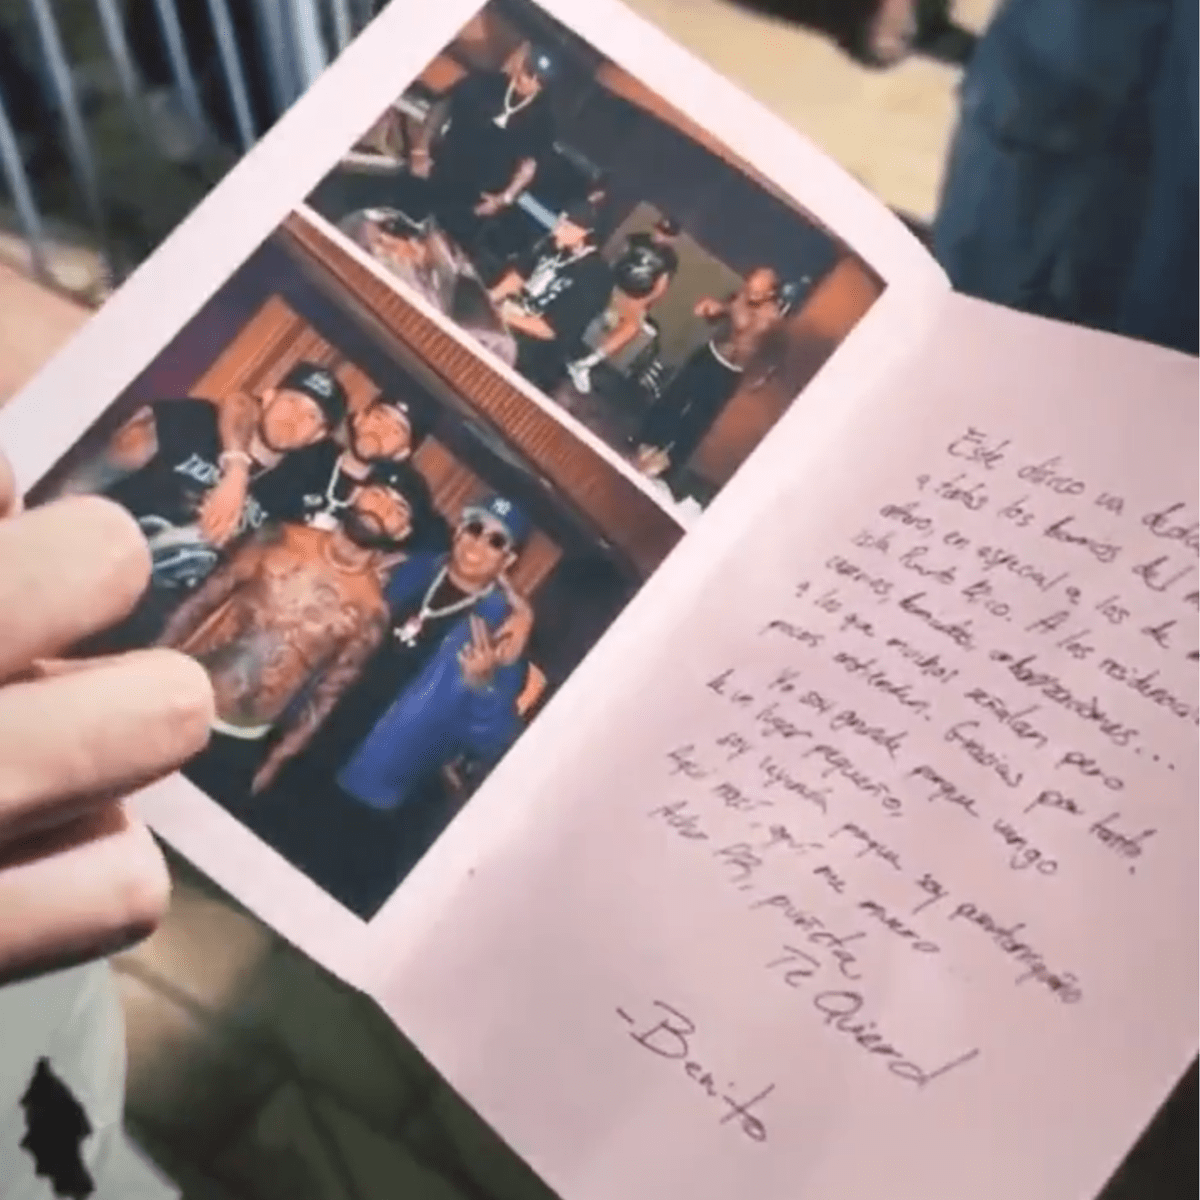 Este disco va dedic
a todos los barrios del m
otro, en especial a los de
isla Puerto Rico. A los residencia
caseríos, barriadas, urbanizaciones...
a los que muchos señalan pero
pocos entienden. Gracias por tanto.
Yo soy grande porque vengo
de un lugar pequeño,
soy leyenda porque soy puertorriqueño
Aquí nací, aquí me muero...
PR, puñeta,
Te Quiero
-Benito